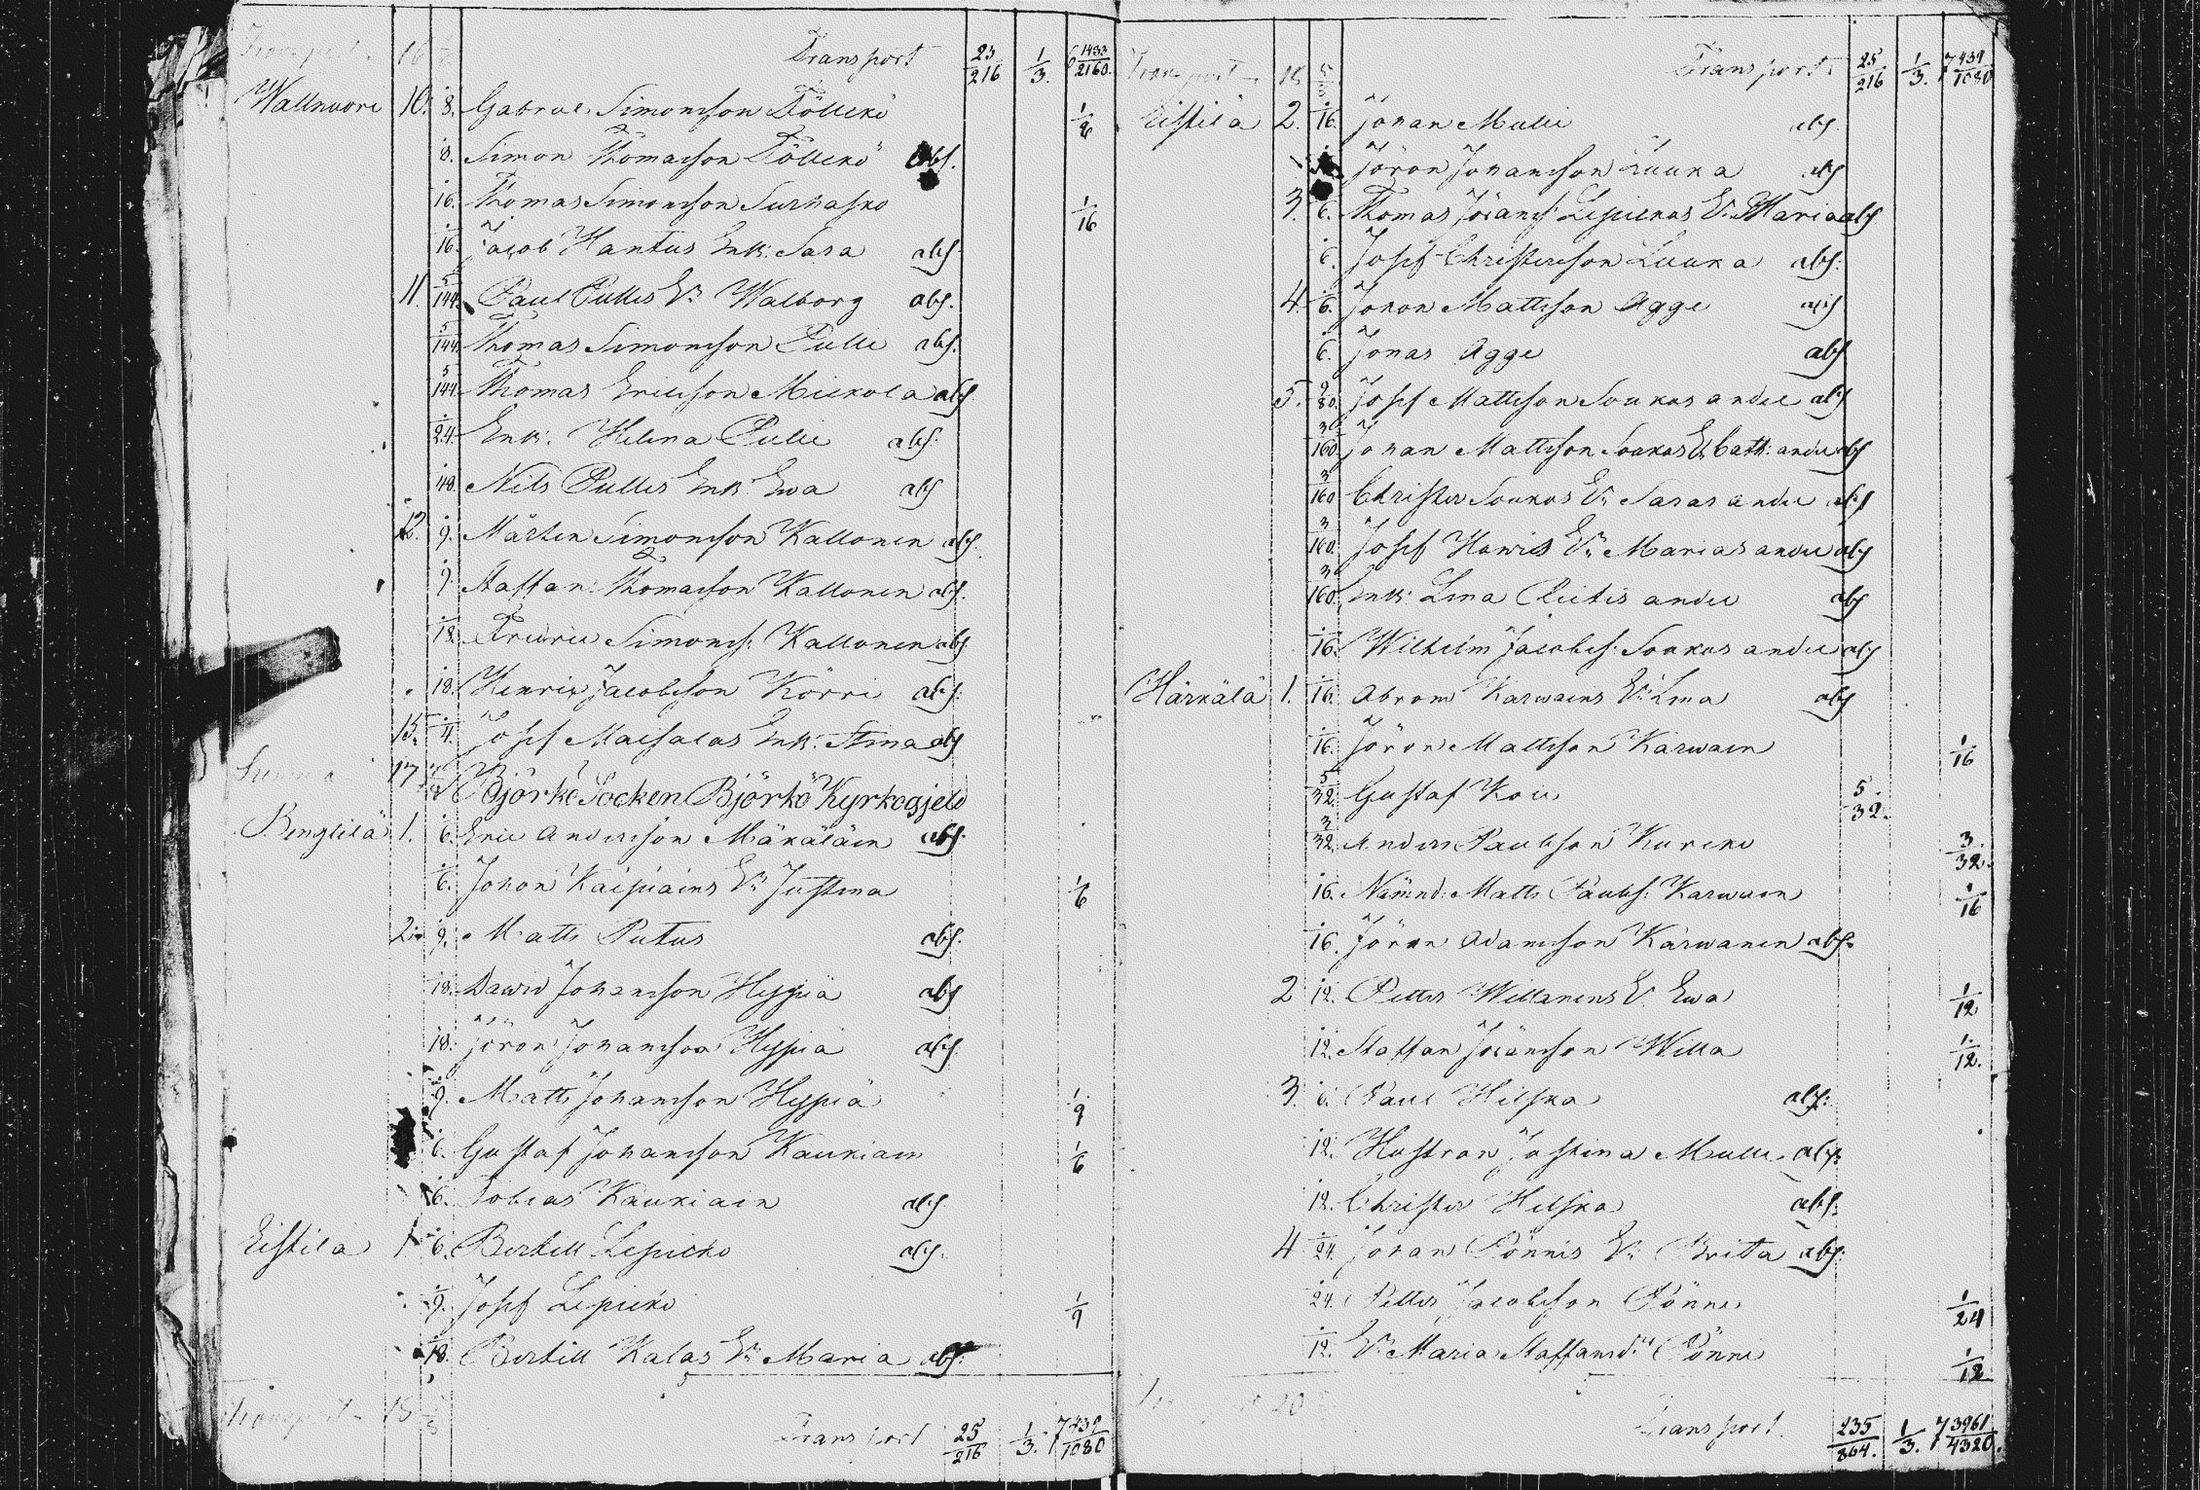 Transport 25/216 1/3. 6 1433/2160.
Wallnuore 10. 1/8. Gabriel Simonsson Töllikö 1/8
1/8. Simon Thomasson Töllikö abs.
1/16. Thomas Simonsson Surnasko 1/16
1/16. Jacob Hantus Enk: Sara abs
11. 5/144. Paul Pullis Er Walborg abs.
5/144. Thomas Simonsson Pulli abs.
5/144. Thomas Ericsson Mickola abs
1/24. Enk: Helena Pulli abs:
1/48. Nils Pullis Enk Ewa abs
12. 1/9. Mårten Simonsson Kallonen abs.
1/9. Staffan Thomasson Kallonen abs.
1/18. Fredric Simonss: Kallonen abs
1/18. Henric Jacobsson Körri abs:
15. 1/4. Josef Maisalas Enk: Stina abs
Summa 17
Björkö Socken Björkö Kyrkogjeld
Bengtilä 1. 1/6. Eric Andersson Mäkäläin abs
1/6. Johan Kaipiains Er Justina 1/6
2. 1/9. Matts Putus abs.
1/18. David Johansson Hyppiä abs
1/18. Jöran Johansson Hyppiä abs
1/9. Matts Johansson Hyppiä 1/9
1/6. Gustaf Johansson Kaukiain 1/6
1/6. Tobias Kaukiain abs
Eistilä 1 1/6. Bertill Lepickö abs.
1/9. Josef Lepickö 1/9
1/18. Bertill Kalas Er Maria abs:
Transport 18
Transport 25/216 1/3. 7 439/1080
Transport 18 Transport 25/216 1/3. 7 439/1080
Eistilä 2. 1/16. Johan Mulli abs.
Jöran Johansson Luuka abs
3. 1/6. Thomas Jöranss: Lepickös Er Maria abs
1/6. Josef Christersson Luuka abs:
4. 1/6. Johan Mattsson Agge abs
1/6. Jonas Agge abs
5. Josef Mattsson Soukas andel abs
3/160. Johan Mattsson Soukas Er Cath: andel abs
3/160. Christer Soukas Er Saras andel abs
3/160. Josef Hawis Er Marias andel abs
3/160. Enk: Lena Pietis andel abs
1/16. Wilhelm Jacobss: Soukas andel abs
Härkälä 1. 1/16. Abram Karwains Er Lena abs
1/16. Jöran Mattsson Karwain 1/16
5/32. Gustaf Koi 5/32.
3/32. Anders Paulsson Kurcki 3/32.
1/16. Nämnd: Matts Paulss: Karwain 1/16
1/16. Jöran Adamsson Karwanen abs
2 1/12. Petter Willanens Er Ewa 1/12
1/12. Staffan Jöransson Willa 1/12.
3. 1/6. Paul Hilska abs:
1/12. Hustron Justina Mulli abs:
1/12. Christer Hilska abs:
4 1/24. Johan Pönnis Er Brita abs:
1/24. Petter Jacobsson Pönni 1/24
1/12. Er Maria Staffansdr Pönni 1/12
20
Transport. 235/864. 1/3. 7 3961/4320.